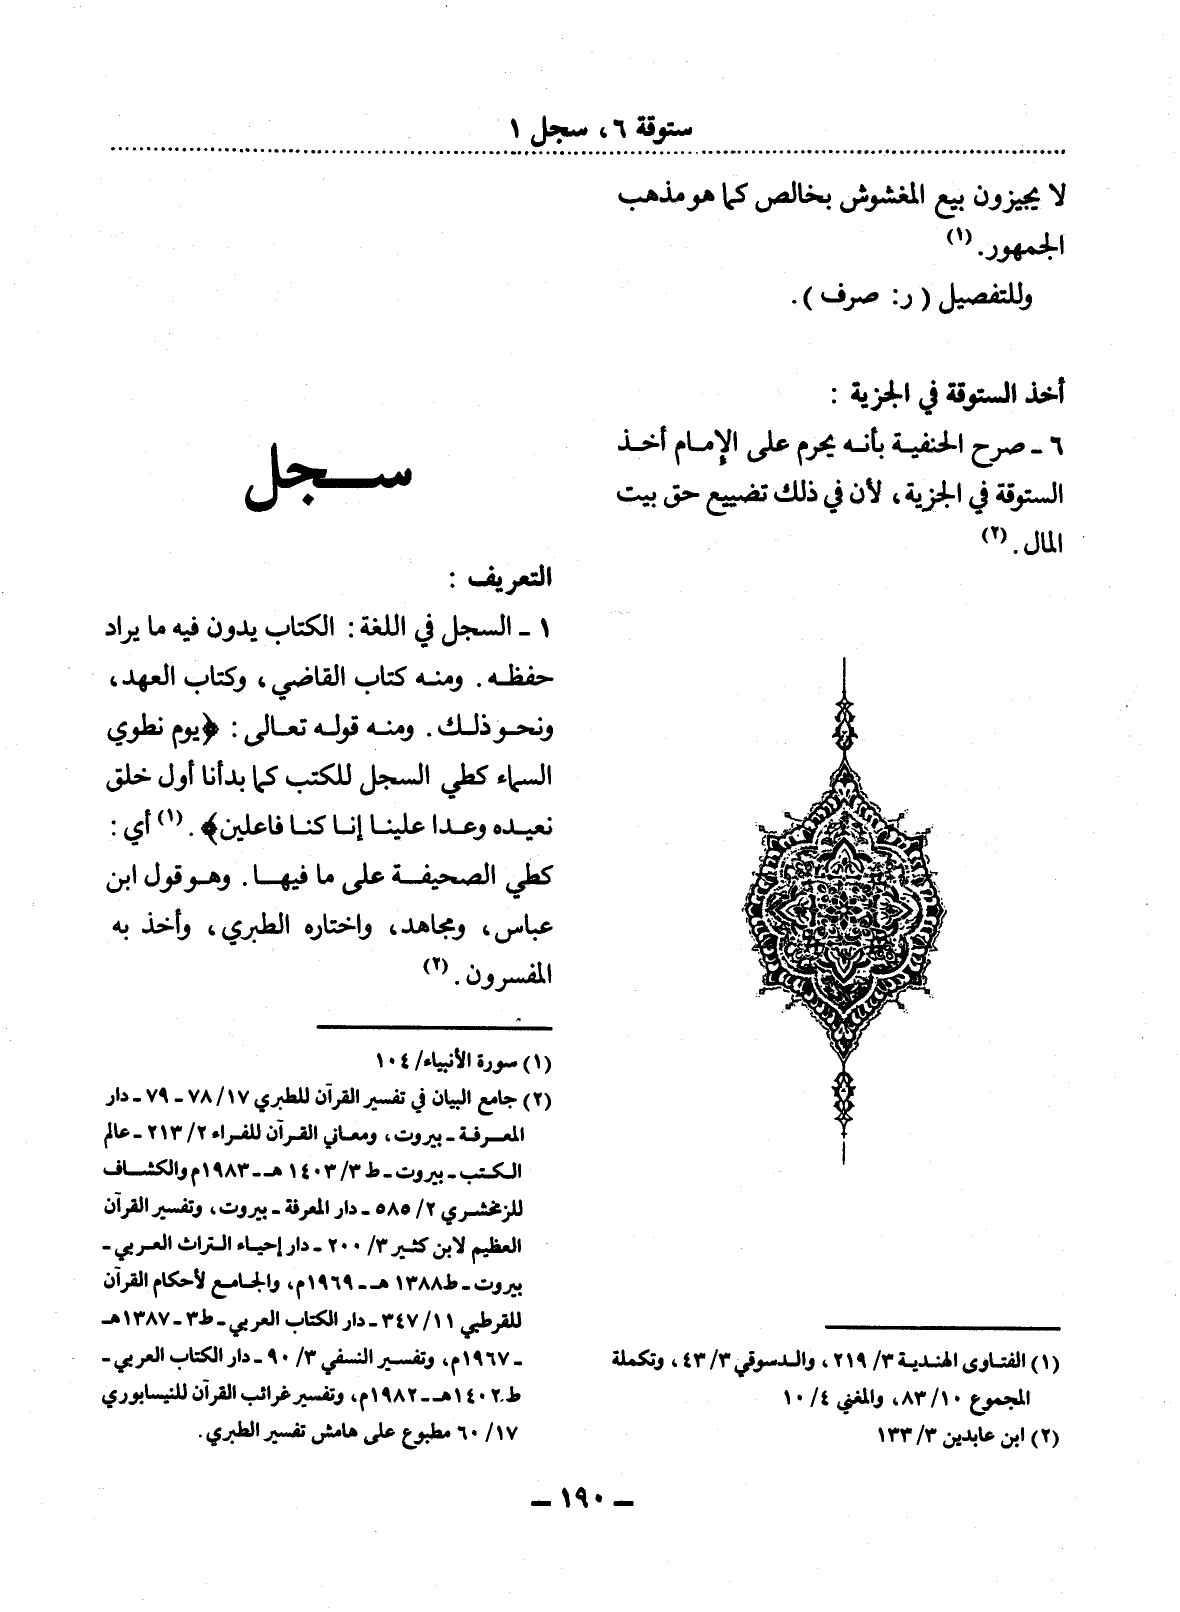 ستوقة ٦، سجل ١
لا يجيزون بيع المغشوش بخالص كما هو مذهب
الجمهور. (١)
وللتفصيل ( ر: صرف ).
أخذ الستوقة في الجزية :
٦ ـ صرح الحنفية بأنه يحرم على الإمام أخذ
الستوقة في الجزية، لأن في ذلك تضييع حق بيت
المال. (٢)
(١) الفتاوى الهندية ٣/ ٢١٩، والدسوقي ٣/ ٤٣، وتكملة
المجموع ١٠/ ٨٣، والمغني ٤/ ١٠
(٢) ابن عابدين ٣/ ١٣٣
سجل
التعريف :
١ ـ السجل في اللغة: الكتاب يدون فيه ما يراد
حفظه. ومنه كتاب القاضي، وكتاب العهد،
ونحو ذلك. ومنه قوله تعالى: ﴿يوم نطوي
السماء كطي السجل للكتب كما بدأنا أول خلق
نعيده وعدا علينا إنا كنا فاعلين﴾. (١) أي:
كطي الصحيفة على ما فيها. وهو قول ابن
عباس، ومجاهد، واختاره الطبري، وأخذ به
المفسرون. (٢)
(١) سورة الأنبياء/ ١٠٤
(٢) جامع البيان في تفسير القرآن للطبري ١٧/ ٧٨ ـ ٧٩ ـ دار
المعرفة ـ بيروت، ومعاني القرآن للفراء ٢/ ٢١٣ ـ عالم
الكتب ـ بيروت ـ ط ٣/ ١٤٠٣ هـ ـ ١٩٨٣م والكشاف
للزمخشري ٢/ ٥٨٥ ـ دار المعرفة ـ بيروت، وتفسير القرآن
العظيم لابن كثير ٣/ ٢٠٠ ـ دار إحياء التراث العربي ـ
بيروت ـ ط١٣٨٨ هـ ـ ١٩٦٩م، والجامع لأحكام القرآن
للقرطبي ١١/ ٣٤٧ ـ دار الكتاب العربي ـ ط٣ ـ ١٣٨٧هـ
ـ ١٩٦٧م، وتفسير النسفي ٣/ ٩٠ ـ دار الكتاب العربي ـ
ط١٤٠٢هـ ـ ١٩٨٢م، وتفسير غرائب القرآن للنيسابوري
١٧/ ٦٠ مطبوع على هامش تفسير الطبري.
ـ ١٩٠ ـ